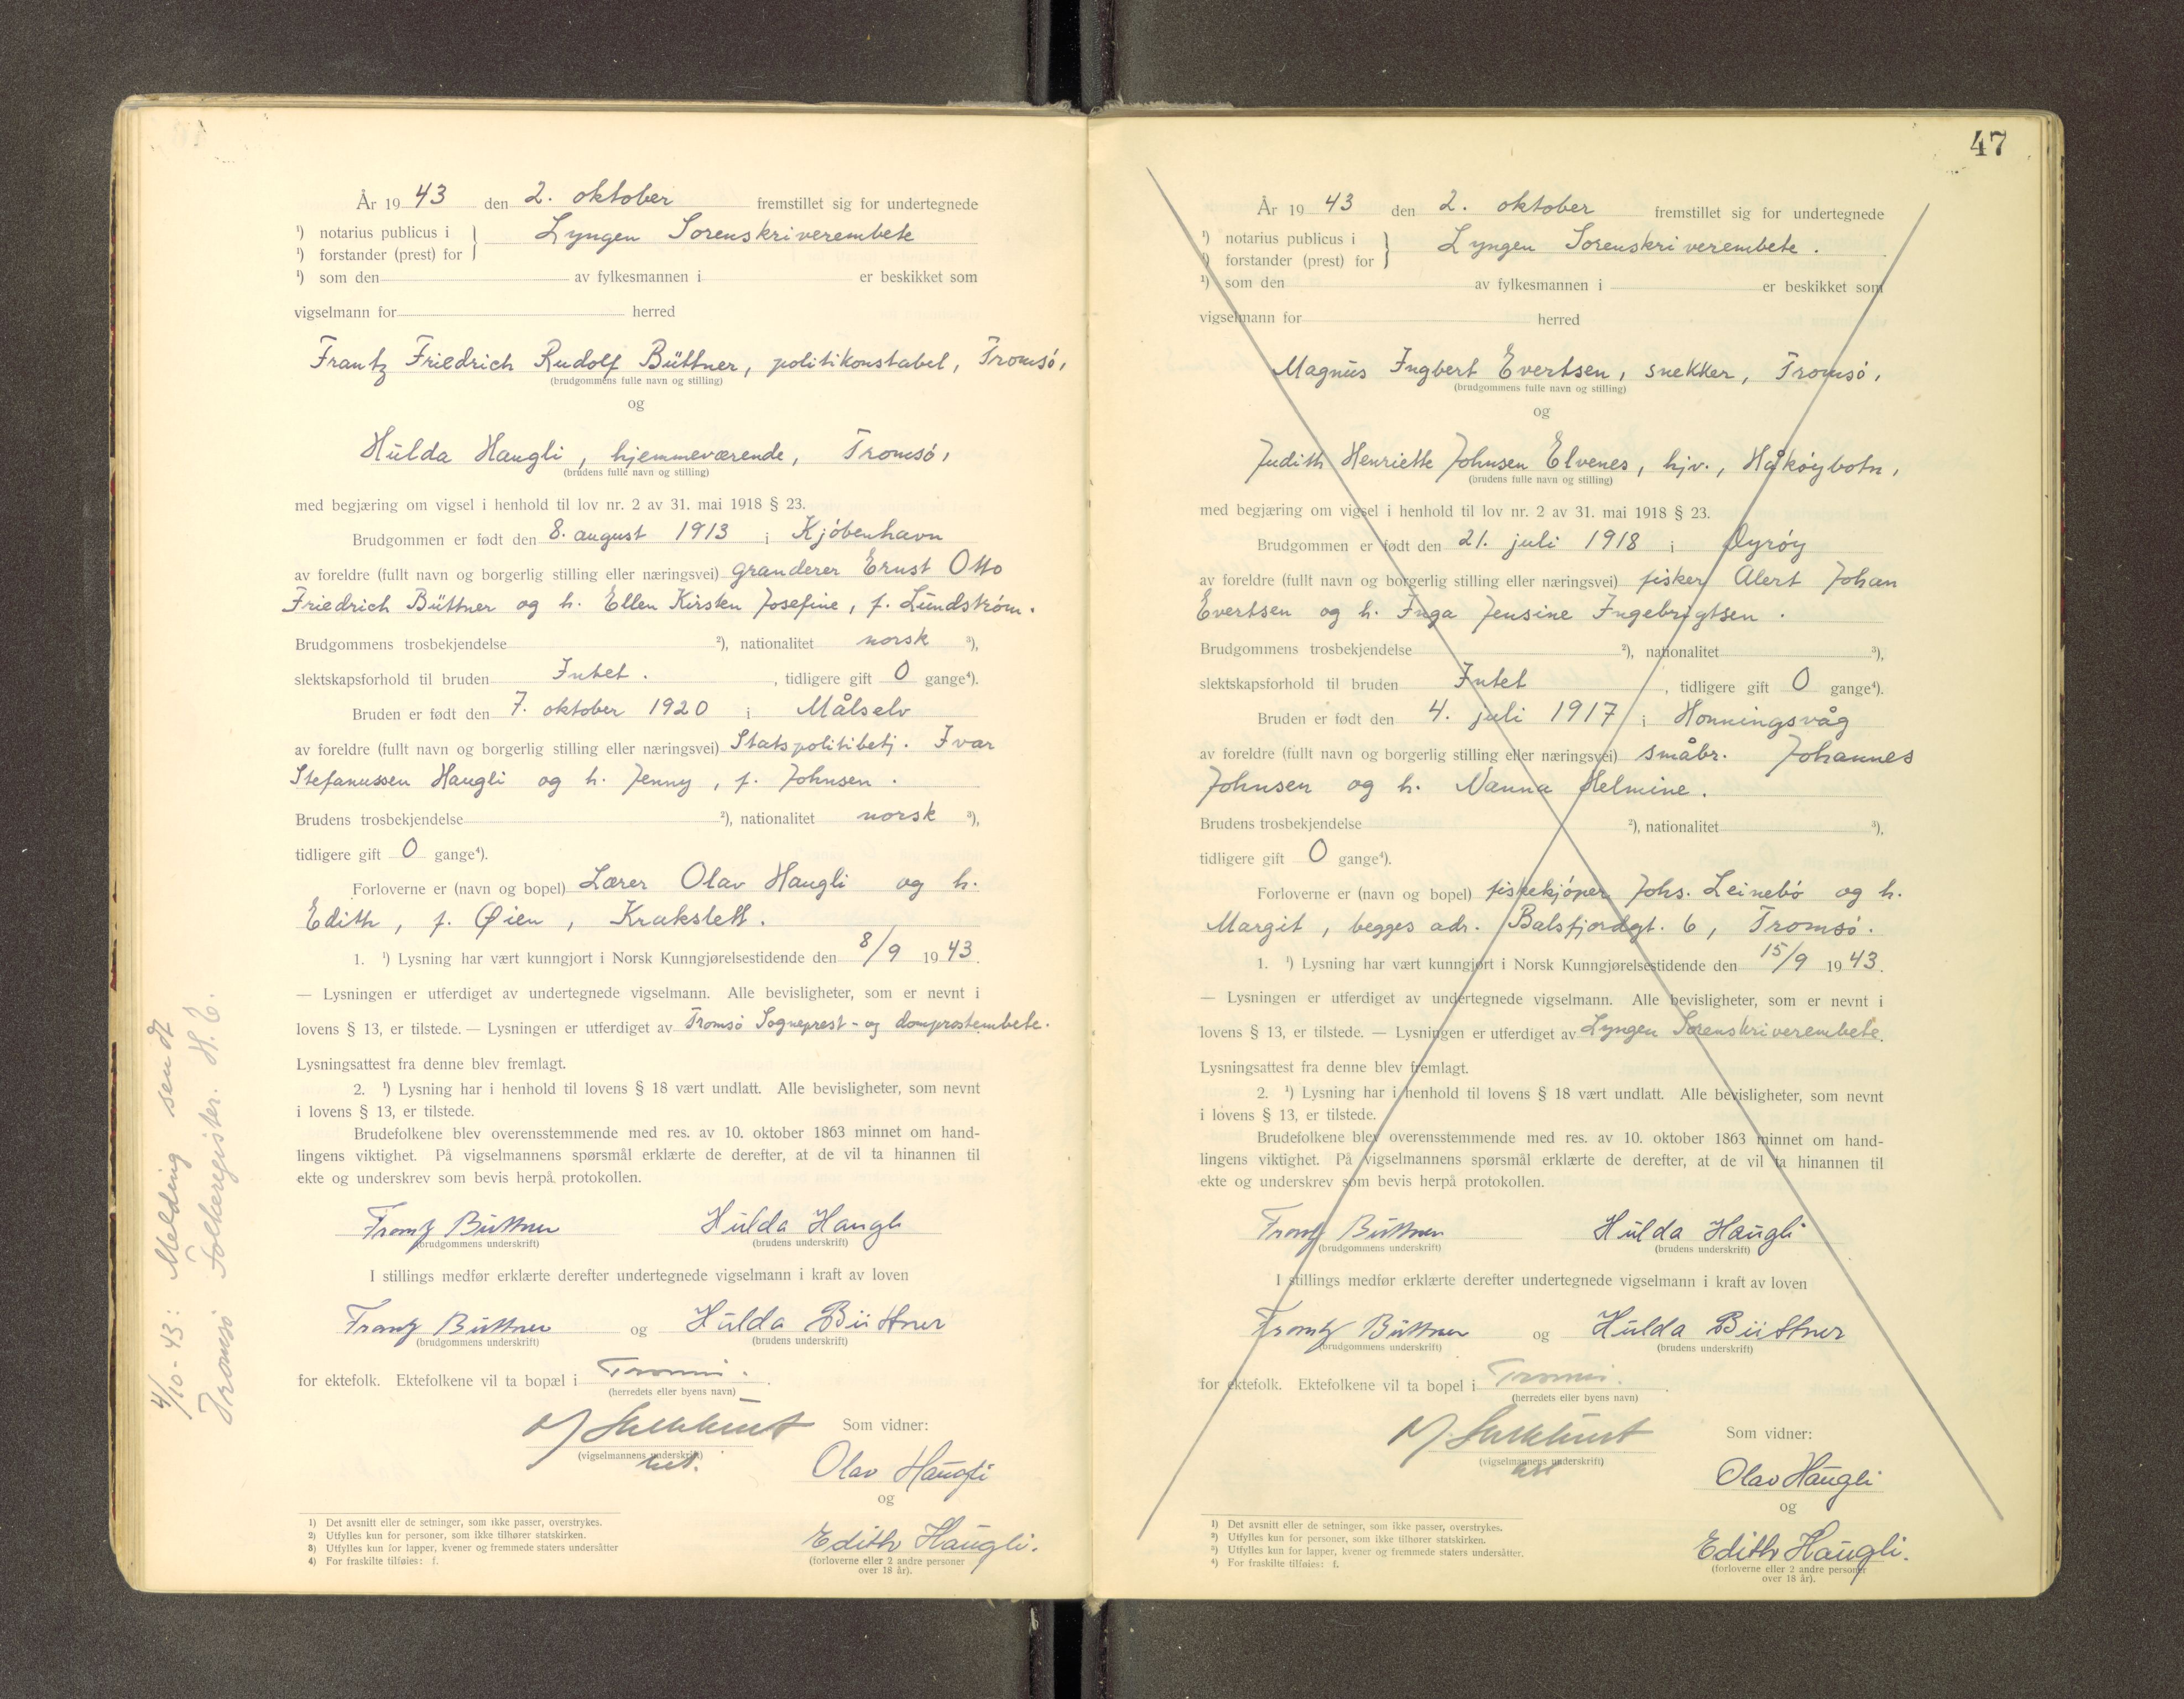 År 1943 den 2. oktober fremstillet sig for undertegnede
¹) notarius publicus i } Lyngen Sorenskriverembete
¹) forstander (prest) for
¹) som den av fylkesmannen i er beskikket som
vigselmann for herred
Frantz Friedrich Rudolf Büttner, politikonstabel, Tromsø,
(brudgommens fulle navn og stilling)
og
Hulda Haugli, hjemmeværende, Tromsø,
(brudens fulle navn og stilling)
med begjæring om vigsel i henhold til lov nr. 2 av 31. mai 1918 § 23.
Brudgommen er født den 8. august 1913 i Kjøbenhavn
av foreldre (fullt navn og borgerlig stilling eller næringsvei) granderer Ernst Otto
Friedrich Büttner og h. Ellen Kirsten Josefine, f. Lundstrøm.
Brudgommens trosbekjendelse ²), nationalitet norsk ³),
slektskapsforhold til bruden Intet. , tidligere gift 0 gange⁴).
Bruden er født den 7. oktober 1920 i Målselv
av foreldre (fullt navn og borgerlig stilling eller næringsvei) Statspolitibetj. Ivar
Stefanussen Haugli og h. Jenny, f. Johnsen.
Brudens trosbekjendelse ²), nationalitet norsk ³),
tidligere gift 0 gange⁴).
Forloverne er (navn og bopel) Lærer Olav Haugli og h.
Edith, f. Øien, Krakslett.
1. ¹) Lysning har vært kunngjort i Norsk Kunngjørelsestidende den 8/9 1943.
— Lysningen er utferdiget av undertegnede vigselmann. Alle bevisligheter, som er nevnt i
lovens § 13, er tilstede. — Lysningen er utferdiget av Tromsø Sogneprest- og domprostembete.
Lysningsattest fra denne blev fremlagt.
2. ¹) Lysning har i henhold til lovens § 18 vært undlatt. Alle bevisligheter, som nevnt
i lovens § 13, er tilstede.
Brudefolkene blev overensstemmende med res. av 10. oktober 1863 minnet om hand-
lingens viktighet. På vigselmannens spørsmål erklærte de derefter, at de vil ta hinannen til
ekte og underskrev som bevis herpå protokollen.
Frantz Büttner Hulda Haugli
(brudgommens underskrift) (brudens underskrift)
I stillings medfør erklærte derefter undertegnede vigselmann i kraft av loven
Frantz Büttner og Hulda Büttner
(brudgommens underskrift) (brudens underskrift)
for ektefolk. Ektefolkene vil ta bopæl i Tromsø.
(herredets eller byens navn)
Som vidner:
(vigselmannens underskrift)
Olav Haugli
og
Edith Haugli.
(forloverne eller 2 andre personer
over 18 år).
1) Det avsnitt eller de setninger, som ikke passer, overstrykes.
2) Utfylles kun for personer, som ikke tilhører statskirken.
3) Utfylles kun for lapper, kvener og fremmede staters undersåtter
4) For fraskilte tilføies: f.
4/10-43: Melding sendt
Tromsø Folkeregister. H.C.
47
År 1943 den 2. oktober fremstillet sig for undertegnede
¹) notarius publicus i } Lyngen Sorenskriverembete.
¹) forstander (prest) for
¹) som den av fylkesmannen i er beskikket som
vigselmann for herred
Magnus Ingbert Evertsen, snekker, Tromsø,
(brudgommens fulle navn og stilling)
og
Judith Henriette Johnsen Elvenes, hjv., Håkøybotn,
(brudens fulle navn og stilling)
med begjæring om vigsel i henhold til lov nr. 2 av 31. mai 1918 § 23.
Brudgommen er født den 21. juli 1918 i Øyrøy
av foreldre (fullt navn og borgerlig stilling eller næringsvei) fisker Alert Johan
Evertsen og h. Inga Jensine Ingebrigtsen.
Brudgommens trosbekjendelse ²), nationalitet ³),
slektskapsforhold til bruden Intet , tidligere gift 0 gange⁴).
Bruden er født den 4. juli 1917 i Honningsvåg
av foreldre (fullt navn og borgerlig stilling eller næringsvei) småbr. Johannes
Johnsen og h. Nanna Helmine.
Brudens trosbekjendelse ²), nationalitet ³),
tidligere gift 0 gange⁴).
Forloverne er (navn og bopel) fiskekjøper Johs. Leinebø og h.
Margit, begges adr. Balsfjordgt. 6, Tromsø.
1. ¹) Lysning har vært kunngjort i Norsk Kunngjørelsestidende den 15/9 1943.
— Lysningen er utferdiget av undertegnede vigselmann. Alle bevisligheter, som er nevnt i
lovens § 13, er tilstede. — Lysningen er utferdiget av Lyngen Sorenskriverembete.
Lysningsattest fra denne blev fremlagt.
2. ¹) Lysning har i henhold til lovens § 18 vært undlatt. Alle bevisligheter, som nevnt
i lovens § 13, er tilstede.
Brudefolkene blev overensstemmende med res. av 10. oktober 1863 minnet om hand-
lingens viktighet. På vigselmannens spørsmål erklærte de derefter, at de vil ta hinannen til
ekte og underskrev som bevis herpå protokollen.
Frantz Büttner Hulda Haugli
(brudgommens underskrift) (brudens underskrift)
I stillings medfør erklærte derefter undertegnede vigselmann i kraft av loven
Frantz Büttner og Hulda Büttner
(brudgommens underskrift) (brudens underskrift)
for ektefolk. Ektefolkene vil ta bopel i Tromsø.
(herredets eller byens navn)
Som vidner:
(vigselmannens underskrift)
Olav Haugli
og
Edith Haugli.
(forloverne eller 2 andre personer
over 18 år).
1) Det avsnitt eller de setninger, som ikke passer, overstrykes.
2) Utfylles kun for personer, som ikke tilhører statskirken.
3) Utfylles kun for lapper, kvener og fremmede staters undersåtter.
4) For fraskilte tilføies: f.